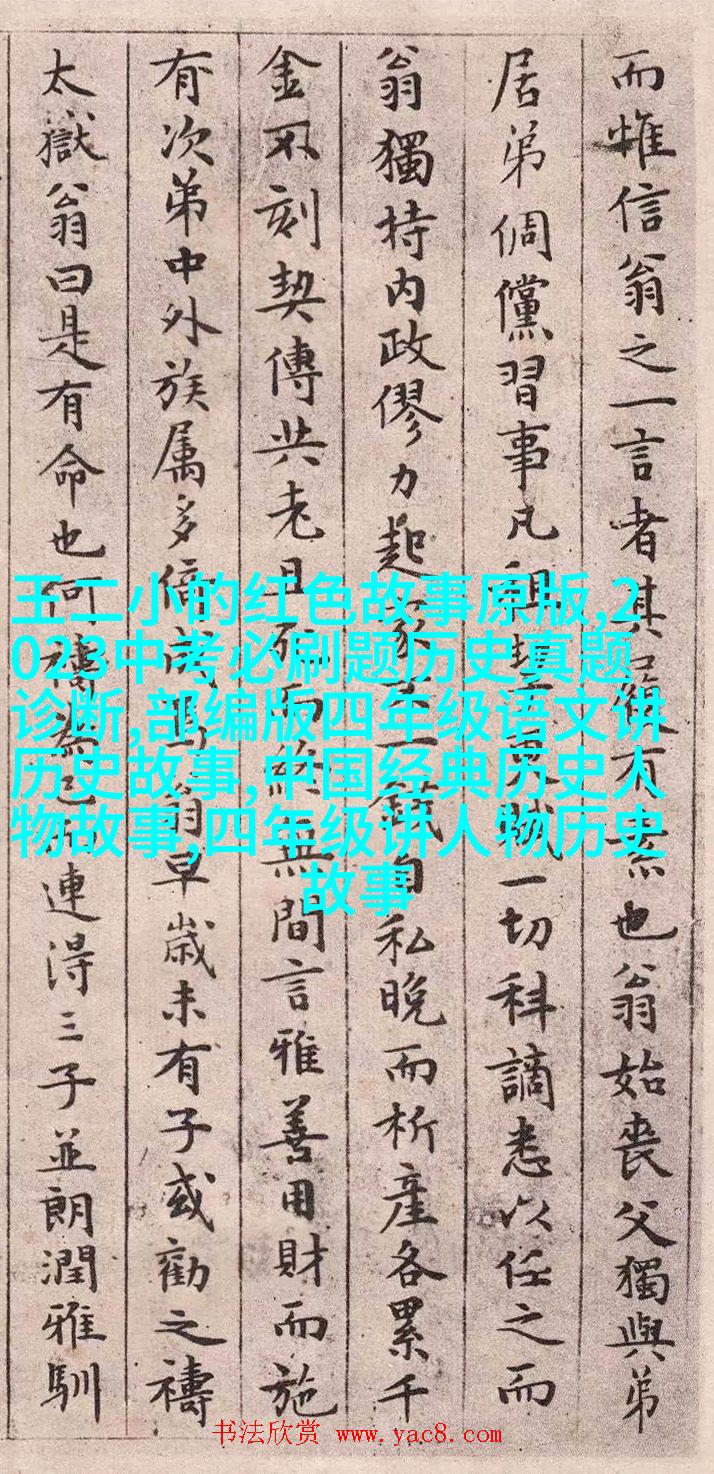 而惟信翁之一言者其口復有素也翁始喪父獨與弟
居弟倜儻習事凡租賦一切科謫悉以任之而
翁獨持内政僇力起家一錢自私晚而析產各累千
金不刻契傳共老且死而終無間言雅善用財而施
有次第中外族属多倚成焉翁早歲未有子或勸之禱
太嶽翁曰是有命也何禱為已而連得三子並朗潤雅馴
王二小的红色故事原版,2
023中考必刷题历史真题
诊断,部编版四年级语文讲
历史故事,中国经典历史人
物故事,四年级讲人物历史
故事
书法欣赏 www.yac8.com